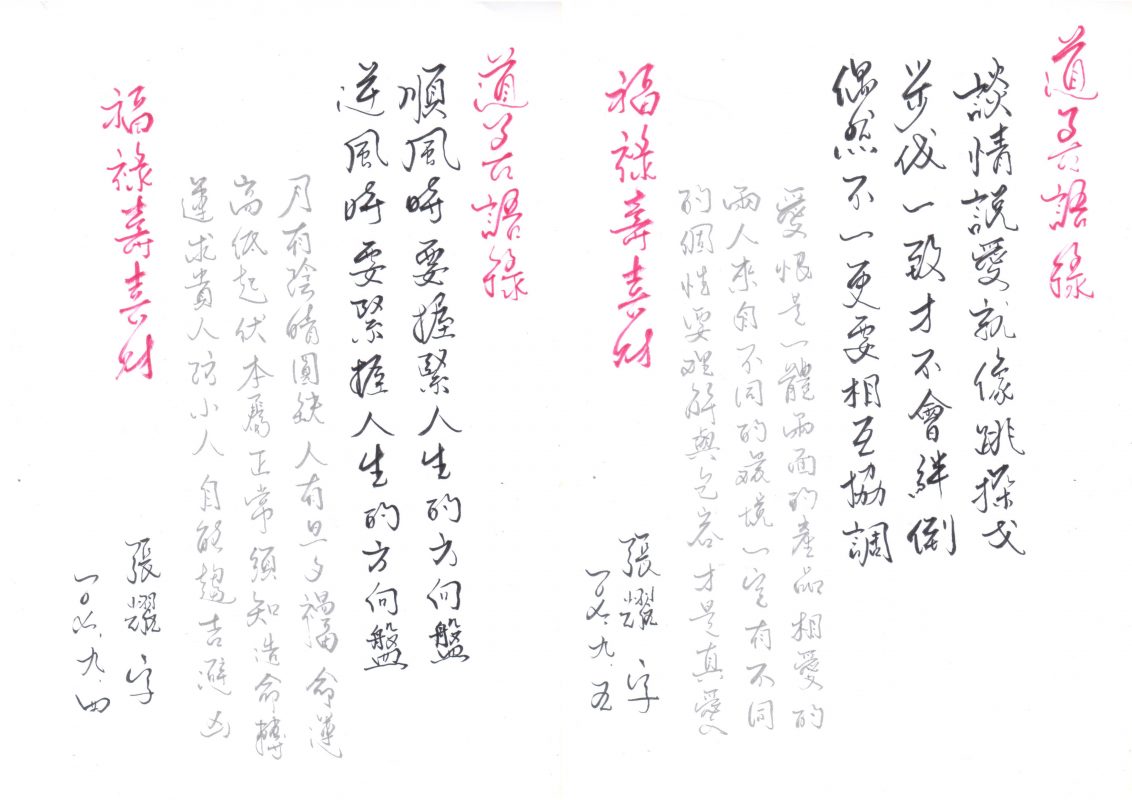 道子六語錄
談情說愛就像跳探戈
步伐一致才不會絆倒
偶然不一更要相互協調
愛恨是一體兩面的產品相愛的
兩人來自不同的環境一定有不同
的個性要理解與包容才是真愛
福祿壽喜財
張耀字
一〇六.九.五
道子六語錄
順風時要握緊人生的方向盤
逆風時要緊握人生的方向盤
月有陰晴圓缺人有旦夕禍福命運
高低起伏本屬正常須知造命轉
運求貴人防小人自能趨吉避凶
福祿壽喜財
張耀字
一〇六.九.四